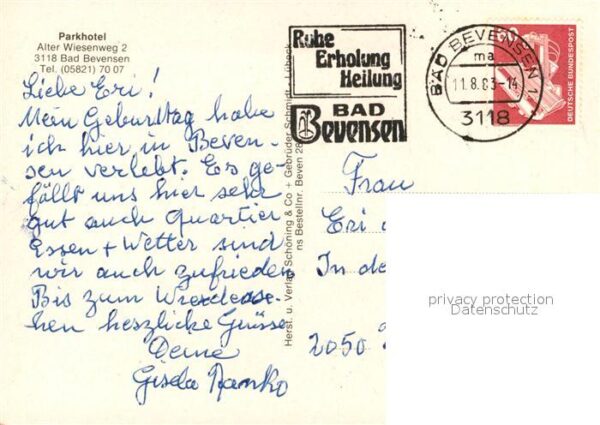 Parkhotel
Alter Wiesenweg 2
3118 Bad Bevensen
Tel. (05821) 70 07
Liebe Eri!
Mein Geburtstag habe
ich hier in Beven-
sen verlebt. Es ge-
fällt uns hier sehr
gut auch Quartier
Essen + Wetter sind
wir auch zufrieden
Bis zum Wiederse-
hen herzliche Grüsse
Deine
Gisela
Herst. u. Verlag Schöning & Co + Gebrüder Schmidt, Lübeck
ns Bestellnr. Beven 28
Ruhe
Erholung
Heilung
BAD
Bevensen
BAD BEVENSEN 1
ma
11.8.83-14
3118
60
DEUTSCHE BUNDESPOST
Frau
Eri
In de
2050
privacy protection
Datenschutz